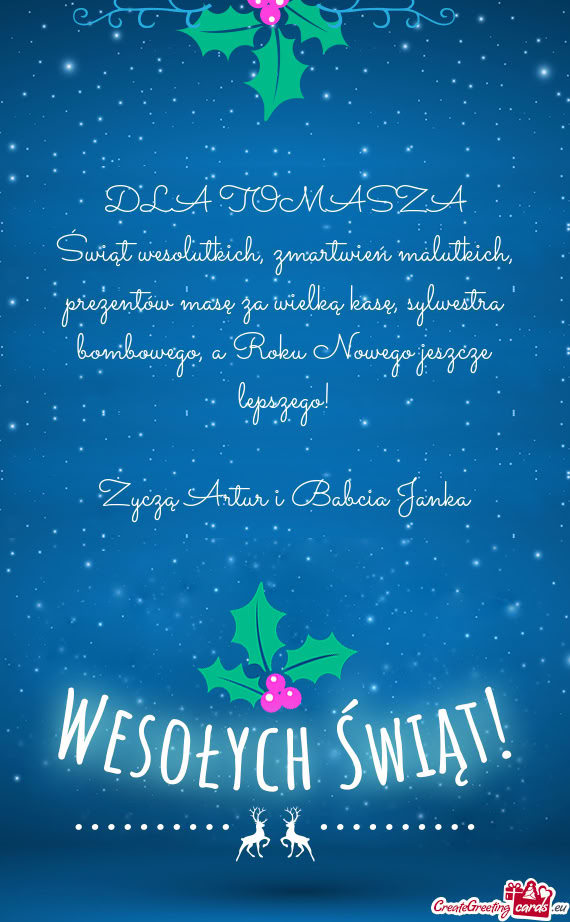 DLA TOMASZA
Świąt wesolutkich, zmartwień malutkich,
prezentów masę za wielką kasę, sylwestra
bombowego, a Roku Nowego jeszcze
lepszego!
Życzą Artur i Babcia Janka
Wesołych Świąt!
CreateGreetingcards.eu